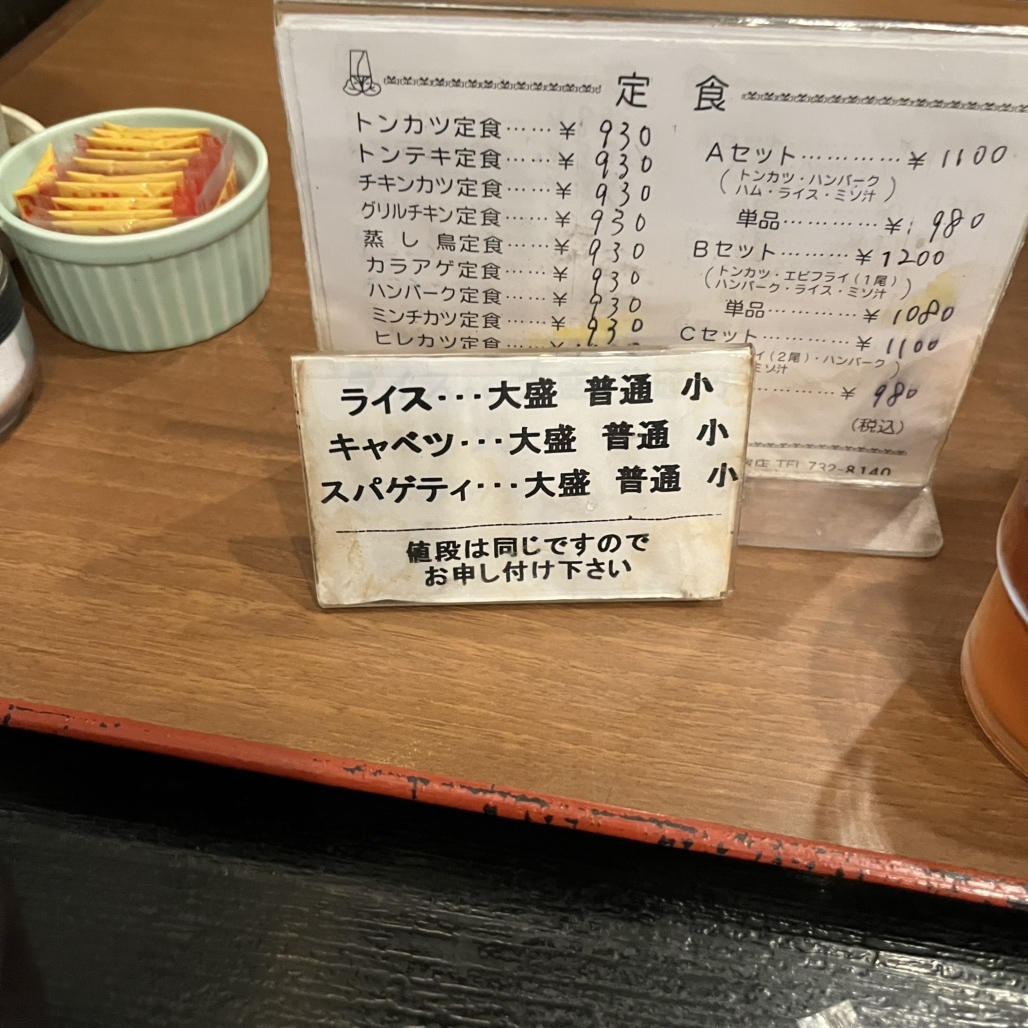 定 食
トンカツ定食……¥ 930
トンテキ定食……¥ 930
チキンカツ定食……¥ 930
グリルチキン定食……¥ 930
蒸し鳥定食……¥ 930
カラアゲ定食……¥ 930
ハンバーク定食……¥ 930
ミンチカツ定食……¥ 930
ヒレカツ定食……¥
Aセット…………¥ 1100
(トンカツ・ハンバーク
ハム・ライス・ミソ汁)
単品…………¥ 980
Bセット…………¥1200
(トンカツ・エビフライ(1尾)
ハンバーク・ライス・ミソ汁)
単品…………¥ 1080
Cセット…………¥ 1100
イ(2尾)・ハンバーク
ミソ汁)
…………¥ 980
(税込)
店 TEL 732-8140
ライス･･･大盛 普通 小
キャベツ･･･大盛 普通 小
スパゲティ･･･大盛 普通 小
値段は同じですので
お申し付け下さい